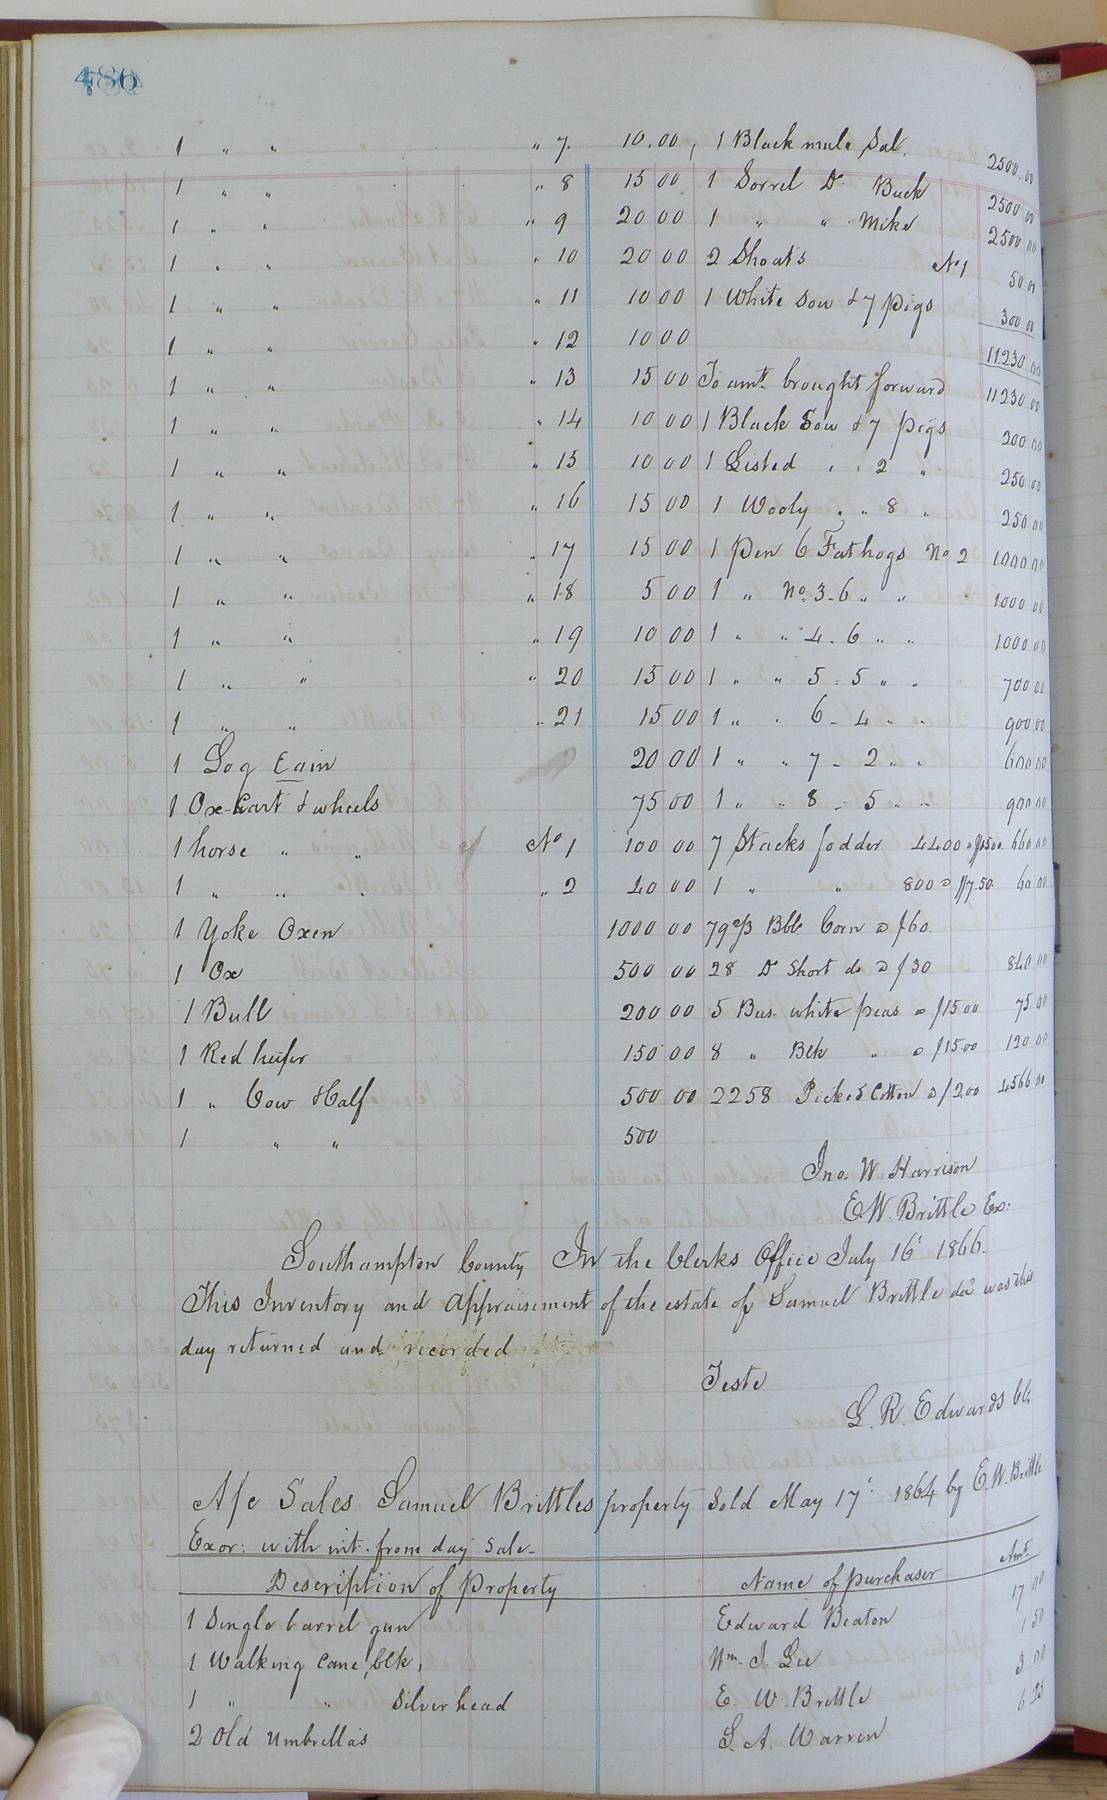 486
1 " " " 7. 10.00, 1 Black mule Sal. 2500.00
1 " " " 8 15 00 1 Sorrel Do Buck 2500 00
1 " " " 9 20 00 1 " " Mike 2500 00
1 " " " 10 20 00 2 Shoats No 1 50 00
1 " " " 11 10 00 1 White Sow & 7 pigs 300 00
1 " " " 12 10 00 11230 00
1 " " " 13 15 00 To amt. brought forward 11230 00
1 " " " 14 10 00 1 Black Sow & 7 pigs 200 00
1 " " " 15 10 00 1 Listed " " 2 " 250 00
1 " " " 16 15 00 1 Wooly " " 8 " 250 00
1 " " " 17 15 00 1 Pen 6 Fathogs No 2 1000 00
1 " " " 18 5 00 1 " No. 3 - 6 " " 1000 00
1 " " " 19 10 00 1 " " 4 - 6 " " 1000 00
1 " " " 20 15 00 1 " " 5 - 5 " " 700 00
1 " " " 21 15 00 1 " " 6 - 4 " " 900 00
1 Log Cain 20 00 1 " " 7 - 2 " " 600 00
1 Ox-Cart & wheels 75 00 1 " " 8 - 5 " " 900 00
1 horse " " No 1 100 00 7 Stacks fodder 4400 @ $1500 660 00
1 " " " " 2 40 00 1 " " 800 @ $7.50 60 00
1 Yoke Oxen 1000 00 79 Bbls Corn @ $60
1 Ox 500 00 28 Do Short do @ $30 840 00
1 Bull 200 00 5 Bus. white peas @ $15 00 75 00
1 Red heifer 150 00 8 " Blk " @ $15 00 120 00
1 " Cow & Half 500 00 2258 Picked Cotton @ $2.00 4566 00
1 " " 500
Jno. W. Harrison
E. W. Brittle Ex:
Southampton County In the Clerks Office July 16th 1866.
This Inventory and Appraisement of the estate of Samuel Brittle decd was this
day returned and recorded
Teste
L. R. Edwards Clk
A/c Sales Samuel Brittles property Sold May 17th 1864 by E. W. Brittle
Exor: with int. from day Sale-
Description of Property Name of purchaser Amt.
1 Single barrel gun Edward Beaton 17 00
1 Walking Cane, blk, Wm. J. Lee 1 50
1 " " Silver head E. W. Brittle 3 00
2 Old Umbrellas S. A. Warren 6 25